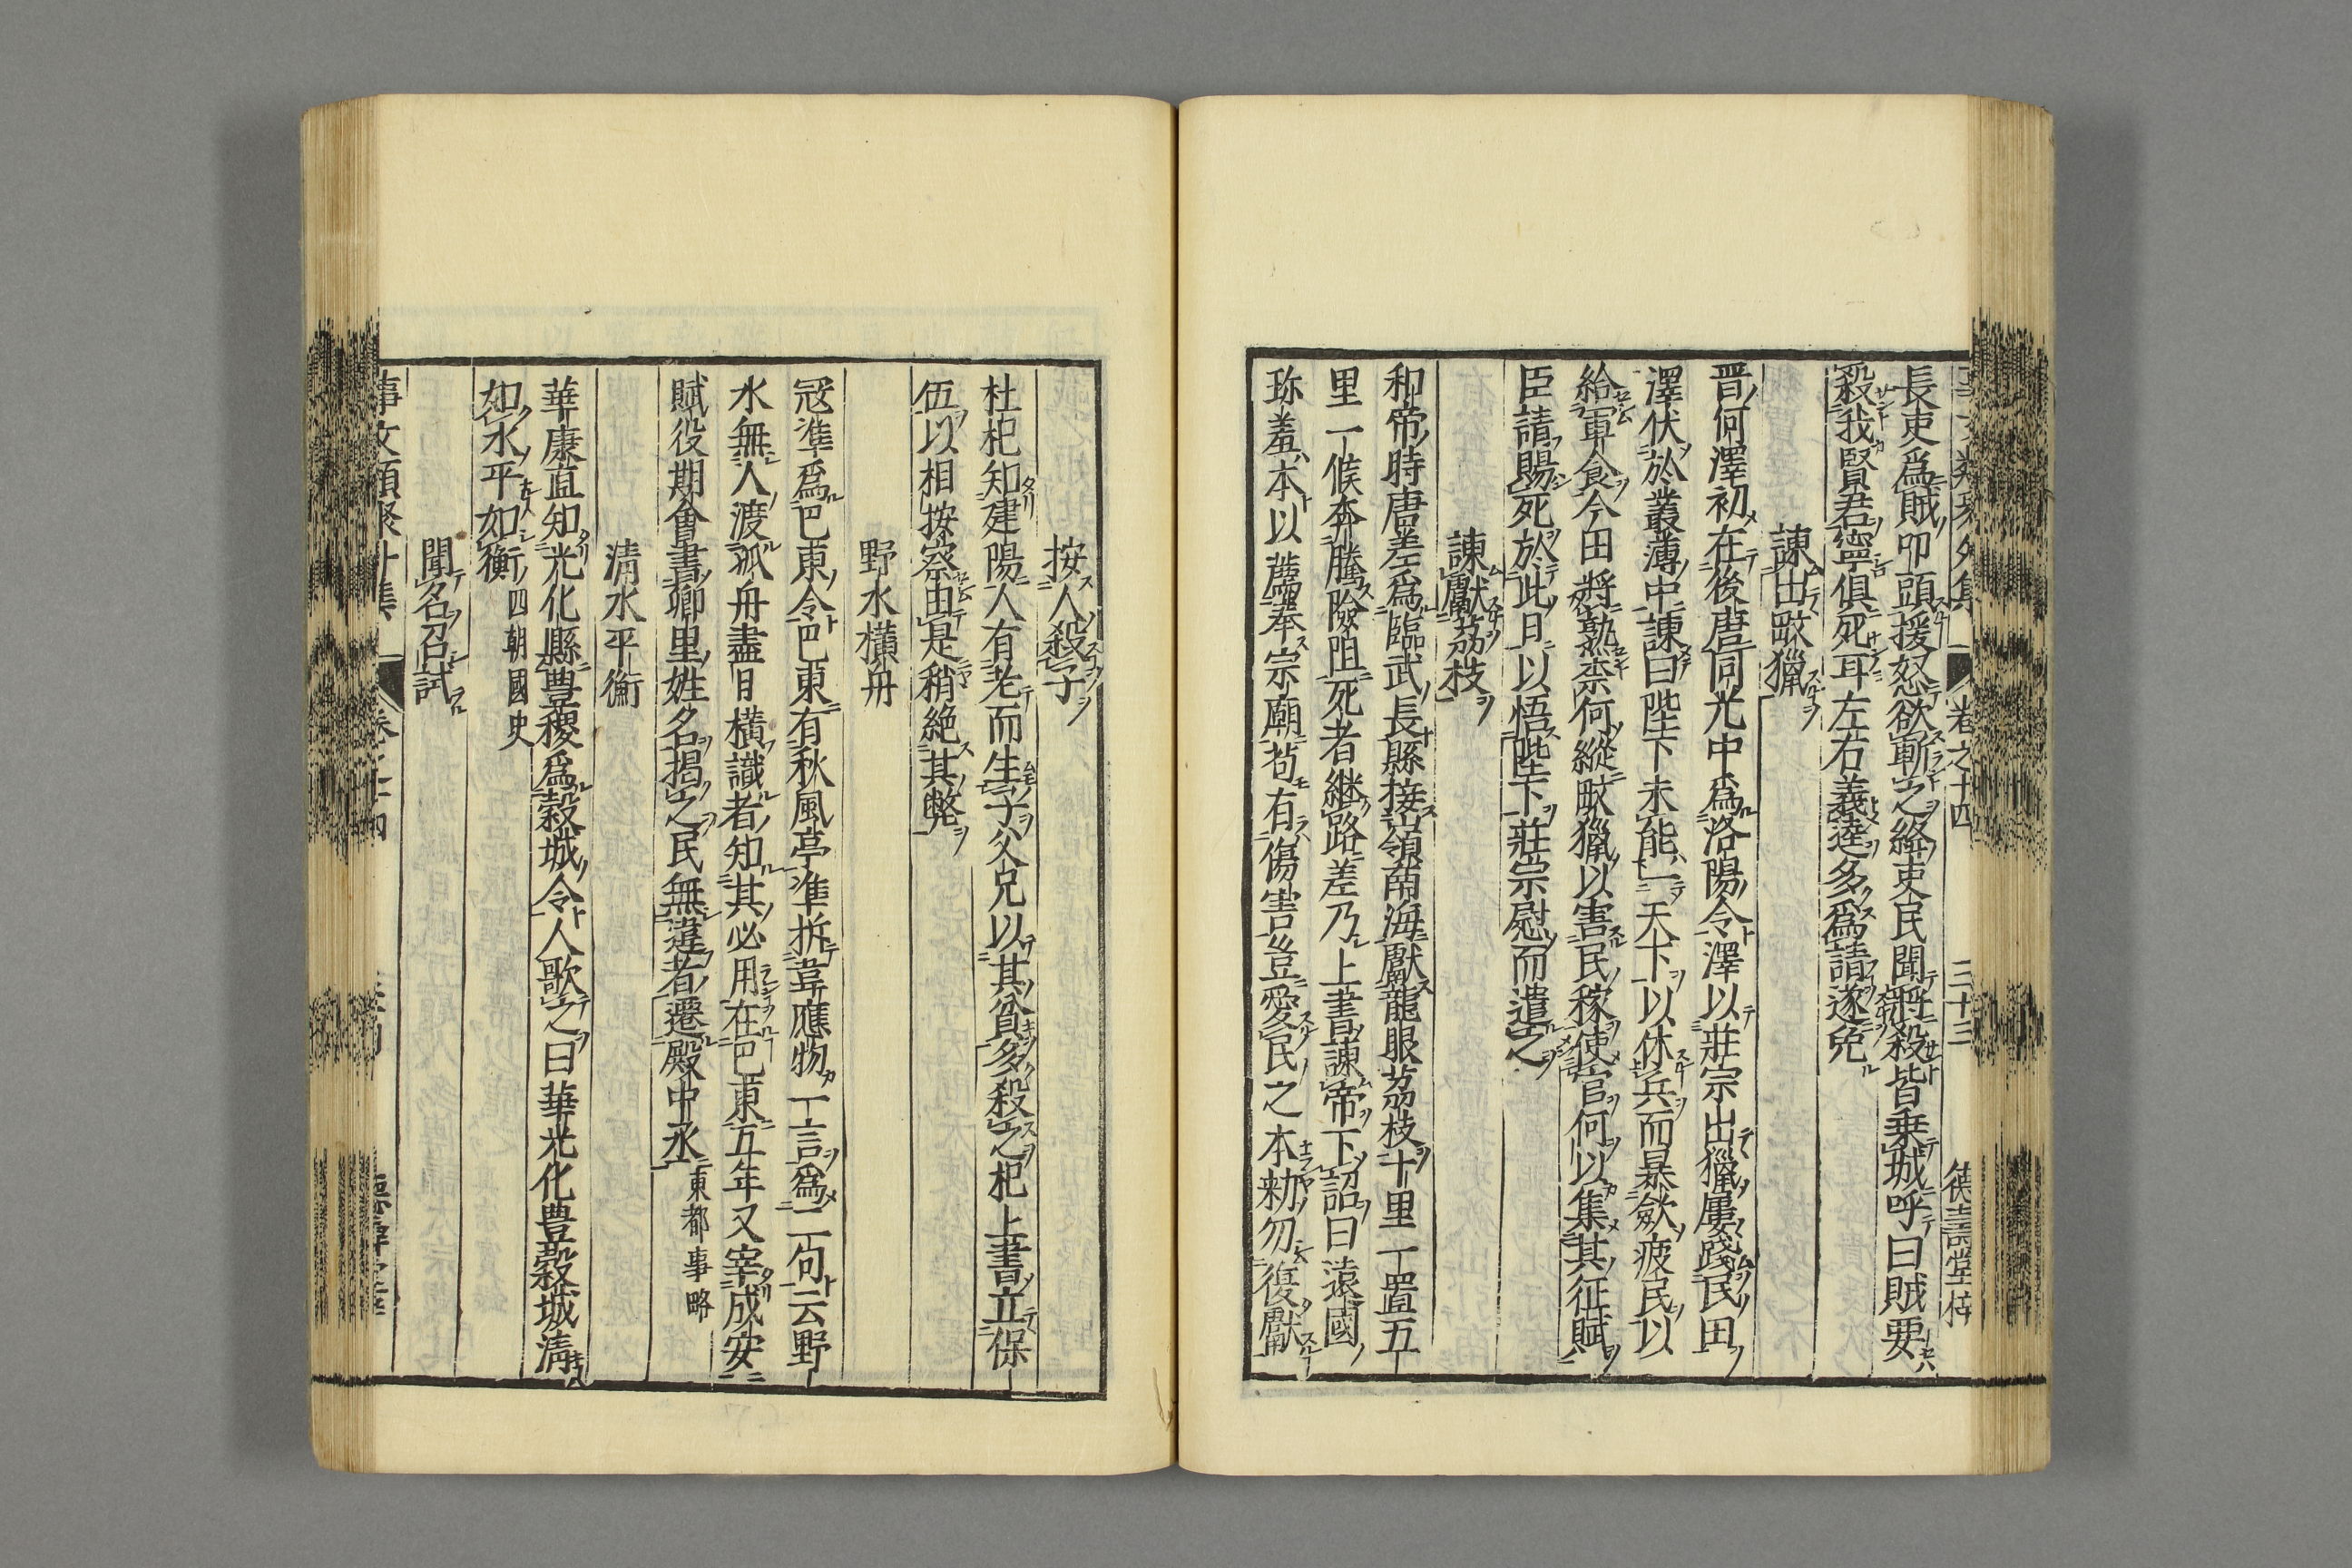 卷之十四 三十三 德壽堂梓
長吏爲賊叩頭援怒欲斬之絳吏民聞將殺皆乗城呼曰賊要
殺我賢君寧俱死耳左右義逵多爲請遂免
諫出畋獵
晋何澤初在後唐同光中爲洛陽令澤以莊宗出獵屢踐民田
澤伏於叢薄中諫曰陛下未能一天下以休兵而暴歛疲民以
給軍食今田將熟柰何縱畋獵以害民稼使官何以集其征賦
臣請賜死於此日以悟陛下莊宗慰而遣之
諫獻茘枝
和帝時唐差爲臨武長縣接嶺南海獻龍眼茘枝十里一置五
里一候奔騰險阻死者継路差乃上書諫帝下詔曰遠國
珍羞本以薦奉宗廟苟有傷害豈愛民之本勑勿復獻
按人殺子
杜杞知建陽人有老而生子父兄以其貧多殺之杞上書立保
伍以相按察由是稍絶其弊
野水横舟
冦準爲巴東令巴東有秋風亭準拆韋應物一言爲二句云野
水無人渡孤舟盡日横識者知其必用在巴東五年又宰成安
賦役期會書鄉里姓名揭之民無違者遷殿中丞東都事略
淸水平衡
華康直知光化縣豊稷爲穀城令人歌之曰華光化豊穀城淸
如水平如衡四朝國史
聞名召試
事文類聚